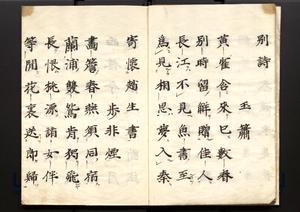 別詩
玉簫
黃雀含來已數春
別時留解贈佳人
長江不見魚書至
爲見相思夢入秦
寄懷趙生書
步非煙
畵簷春燕須同宿
蘭浦雙鴛肯獨飛
長恨桃源諸女伴
等閒花裏送郎歸